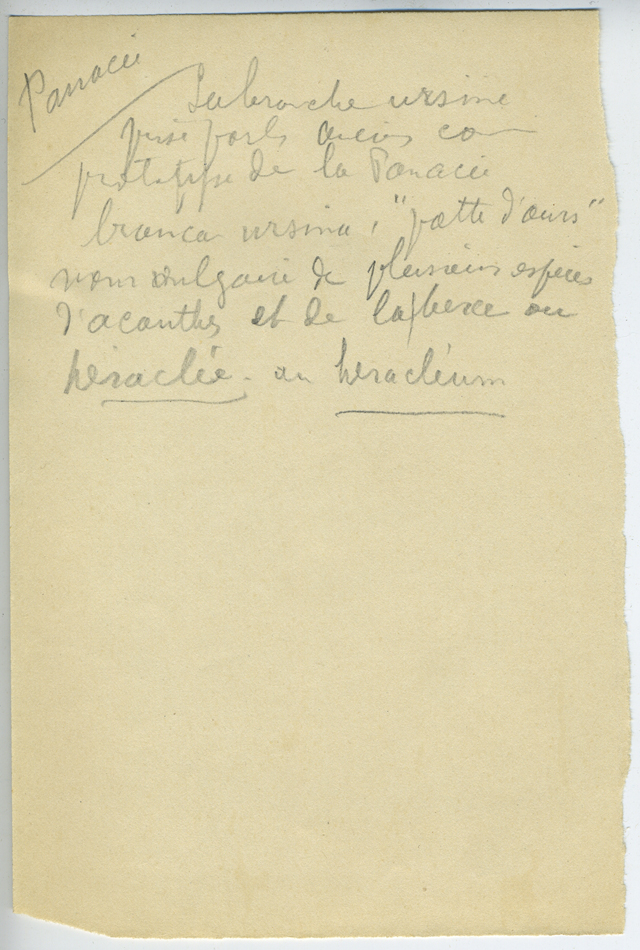 Panacée
La branche ursine
prise par les anciens co
prototype de la Panacée
branca ursina, "patte d'ours"
nom vulgaire de plusieurs espèces
d'acanthes et de la berce ou
héraclée - ou heracléum